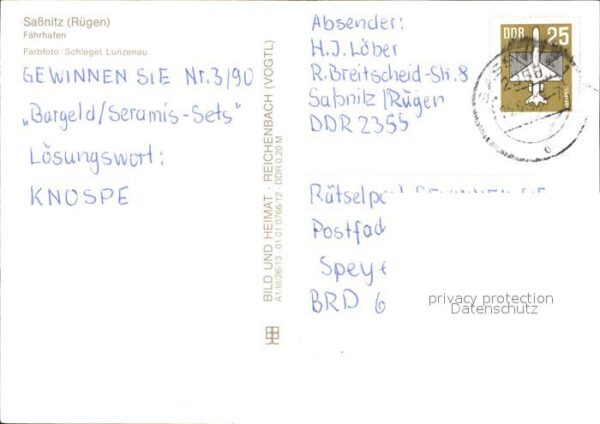 Saßnitz (Rügen)
Fährhafen
Farbfoto: Schlegel, Lunzenau
GEWINNEN SIE Nr.3/90
„Bargeld/Seramis-Sets"
Lösungswort:
KNOSPE
BILD UND HEIMAT · REICHENBACH (VOGTL)
A1/III/26/13 01 01 0766/12 DDR 0,20 M
Absender:
H.J. Löber
R.Breitscheid-Str.8
Saßnitz/Rügen
DDR 2355
DDR 25
Postfad
Spey
BRD 6
privacy protection
Datenschutz